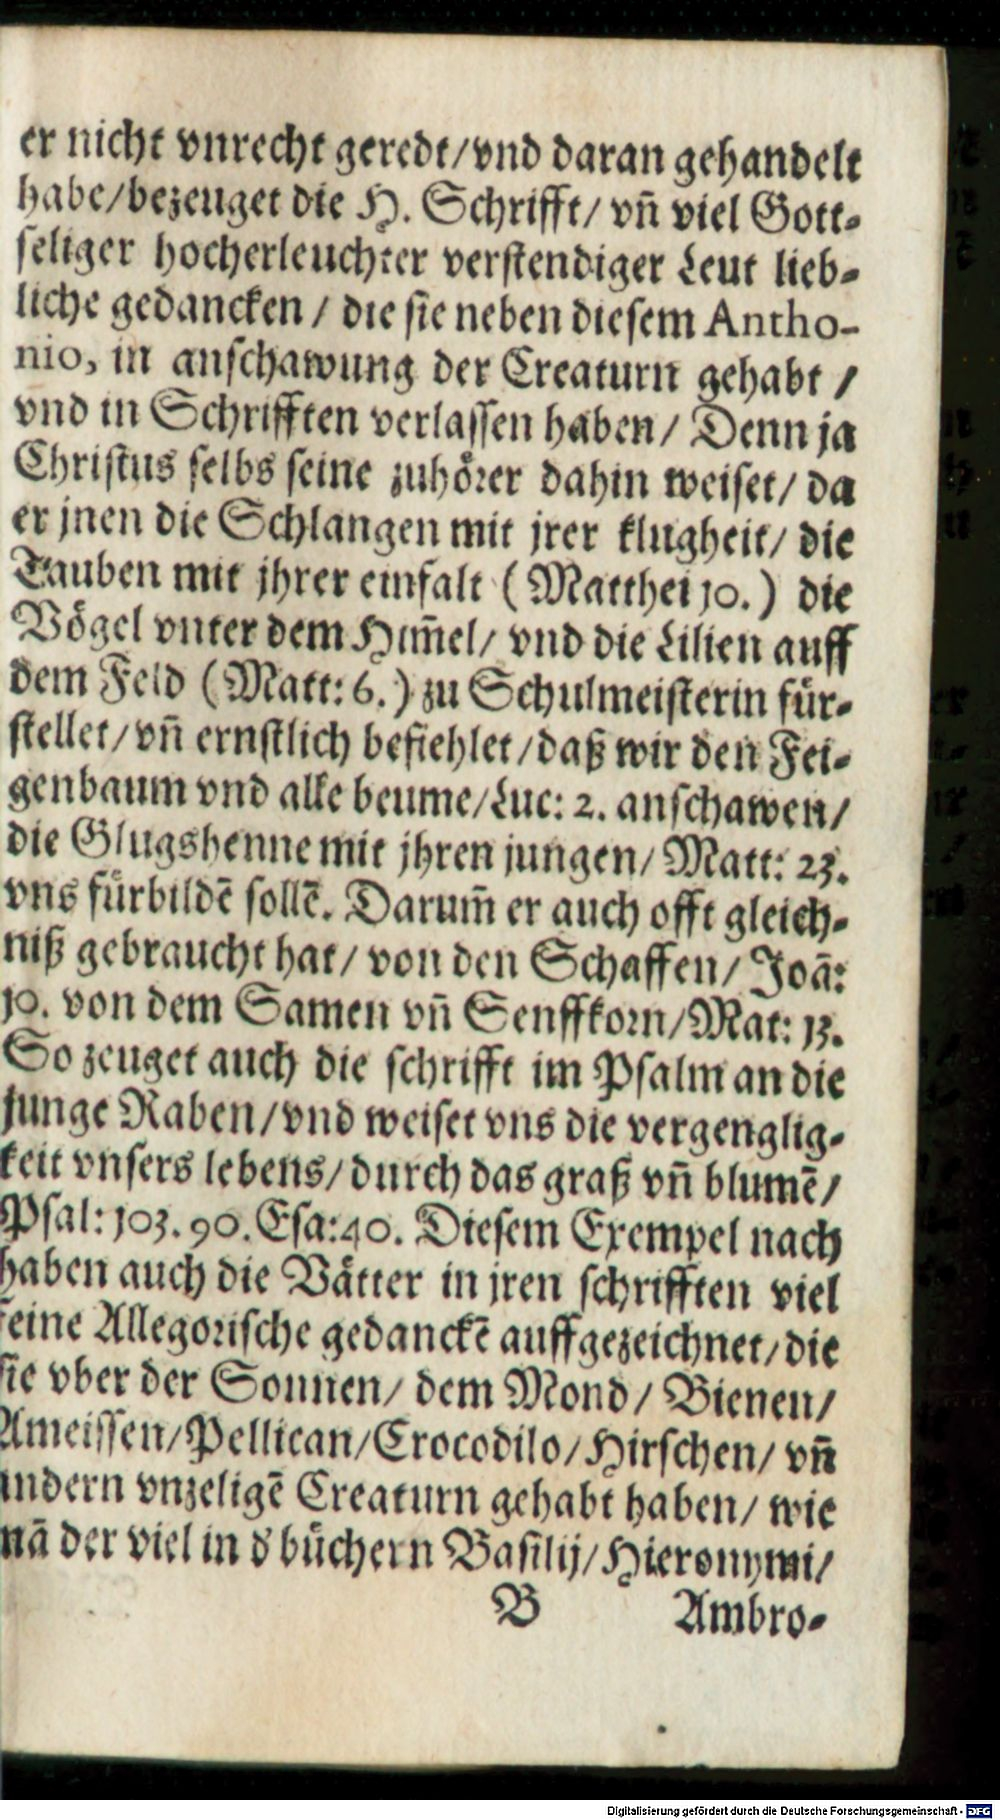 er nicht vnrecht geredt/vnd daran gehandelt
habe/bezeuget die H. Schrifft/ vn̄ viel Gott-
seliger hocherleuchter verstendiger Leut lieb-
liche gedancken / die sie neben diesem Antho-
nio, in anschawung der Creaturn gehabt /
vnd in Schrifften verlassen haben/ Denn ja
Christus selbs seine zuhörer dahin weiset/ da
er jnen die Schlangen mit jrer klugheit/ die
Tauben mit jhrer einfalt (Matthei 10.) die
Vögel vnter dem Him̄el/ vnd die Lilien auff
dem Feld (Matt: 6.) zu Schulmeisterin für-
stellet/vn̄ ernstlich befiehlet/daß wir den Fei-
genbaum vnd alle beume/Luc: 2. anschawen/
die Glugshenne mit jhren jungen/ Matt: 23.
vns fürbildē sollē. Darum̄ er auch offt gleich-
niß gebraucht hat/ von den Schaffen/ Joā:
10. von dem Samen vn̄ Senffkorn/Mat: 13.
So zeuget auch die schrifft im Psalm an die
junge Raben/vnd weiset vns die vergenglig-
keit vnsers lebens/durch das graß vn̄ blumē/
Psal: 103. 90. Esa: 40. Diesem Exempel nach
haben auch die Vätter in jren schrifften viel
feine Allegorische gedanckē auffgezeichnet/die
sie vber der Sonnen/ dem Mond/ Bienen/
Ameissen/Pellican/Crocodilo/Hirschen/ vn̄
andern vnzeligē Creaturn gehabt haben/ wie
mā der viel in d' büchern Basilij/Hieronymi/
B Ambro-
Digitalisierung gefördert durch die Deutsche Forschungsgemeinschaft - DFG